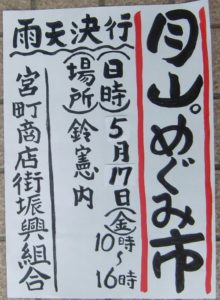 月山。めぐみ市
雨天決行
(日時)5月17日(金)
10時~16時
(場所)鈴憲内
宮町商店街振興組合